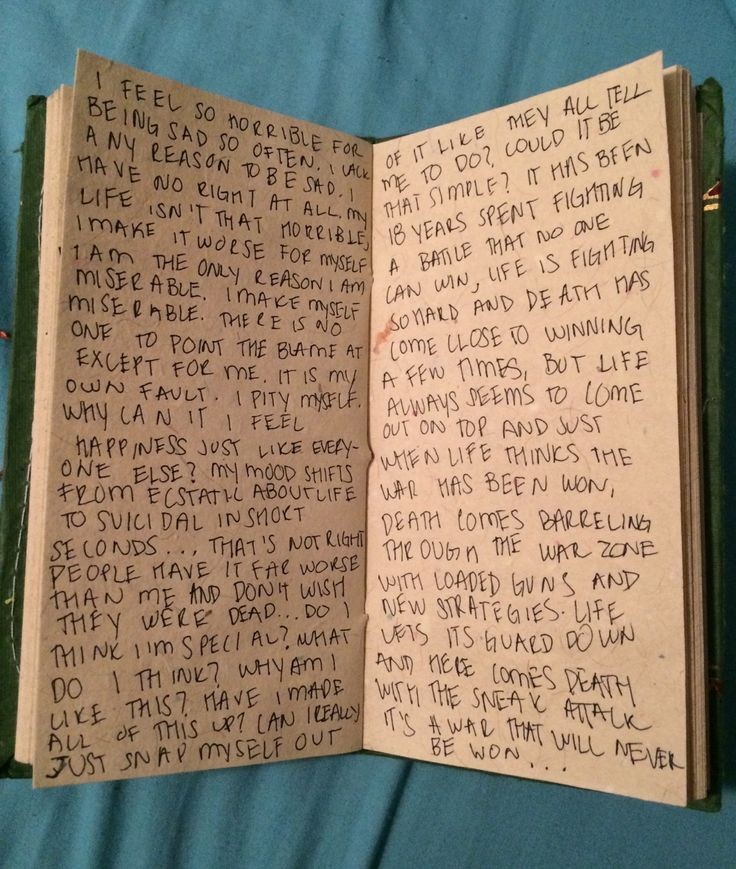 I FEEL SO HORRIBLE FOR
BEING SAD SO OFTEN. I LACK
ANY REASON TO BE SAD. I
HAVE NO RIGHT AT ALL. MY
LIFE ISN'T THAT HORRIBLE,
I MAKE IT WORSE FOR MYSELF
I AM THE ONLY REASON I AM
MISERABLE. I MAKE MYSELF
MISERABLE. THERE IS NO
ONE TO POINT THE BLAME AT
EXCEPT FOR ME. IT IS MY
OWN FAULT. I PITY MYSELF.
WHY CAN IT I FEEL
HAPPINESS JUST LIKE EVERY-
ONE ELSE? MY MOOD SHIFTS
FROM ECSTATIC ABOUT LIFE
TO SUICIDAL IN SHORT
SECONDS... THAT'S NOT RIGHT
PEOPLE HAVE IT FAR WORSE
THAN ME AND DON'T WISH
THEY WERE DEAD... DO I
THINK I'M SPECIAL? WHAT
DO I THINK? WHY AM I
LIKE THIS? HAVE I MADE
ALL OF THIS UP? CAN I REALLY
JUST SNAP MYSELF OUT
OF IT LIKE THEY ALL TELL
ME TO DO? COULD IT BE
THAT SIMPLE? IT HAS BEEN
18 YEARS SPENT FIGHTING
A BATTLE THAT NO ONE
CAN WIN, LIFE IS FIGHTING
SO HARD AND DEATH HAS
COME CLOSE TO WINNING
A FEW TIMES, BUT LIFE
ALWAYS SEEMS TO COME
OUT ON TOP AND JUST
WHEN LIFE THINKS THE
WAR HAS BEEN WON,
DEATH COMES BARRELING
THROUGH THE WAR ZONE
WITH LOADED GUNS AND
NEW STRATEGIES. LIFE
LETS ITS GUARD DOWN
AND HERE COMES DEATH
WITH THE SNEAK ATTACK
IT'S A WAR THAT WILL NEVER
BE WON...